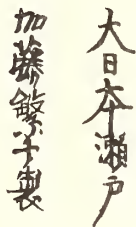 大日本瀬戸
加藤繁十製